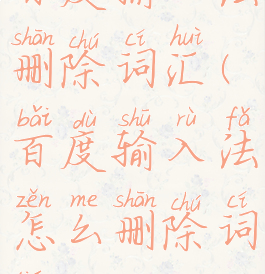 shān chú cí huì
删除词汇(
bǎi dù shū rù fǎ
百度输入法
zěn me shān chú cí
怎么删除词